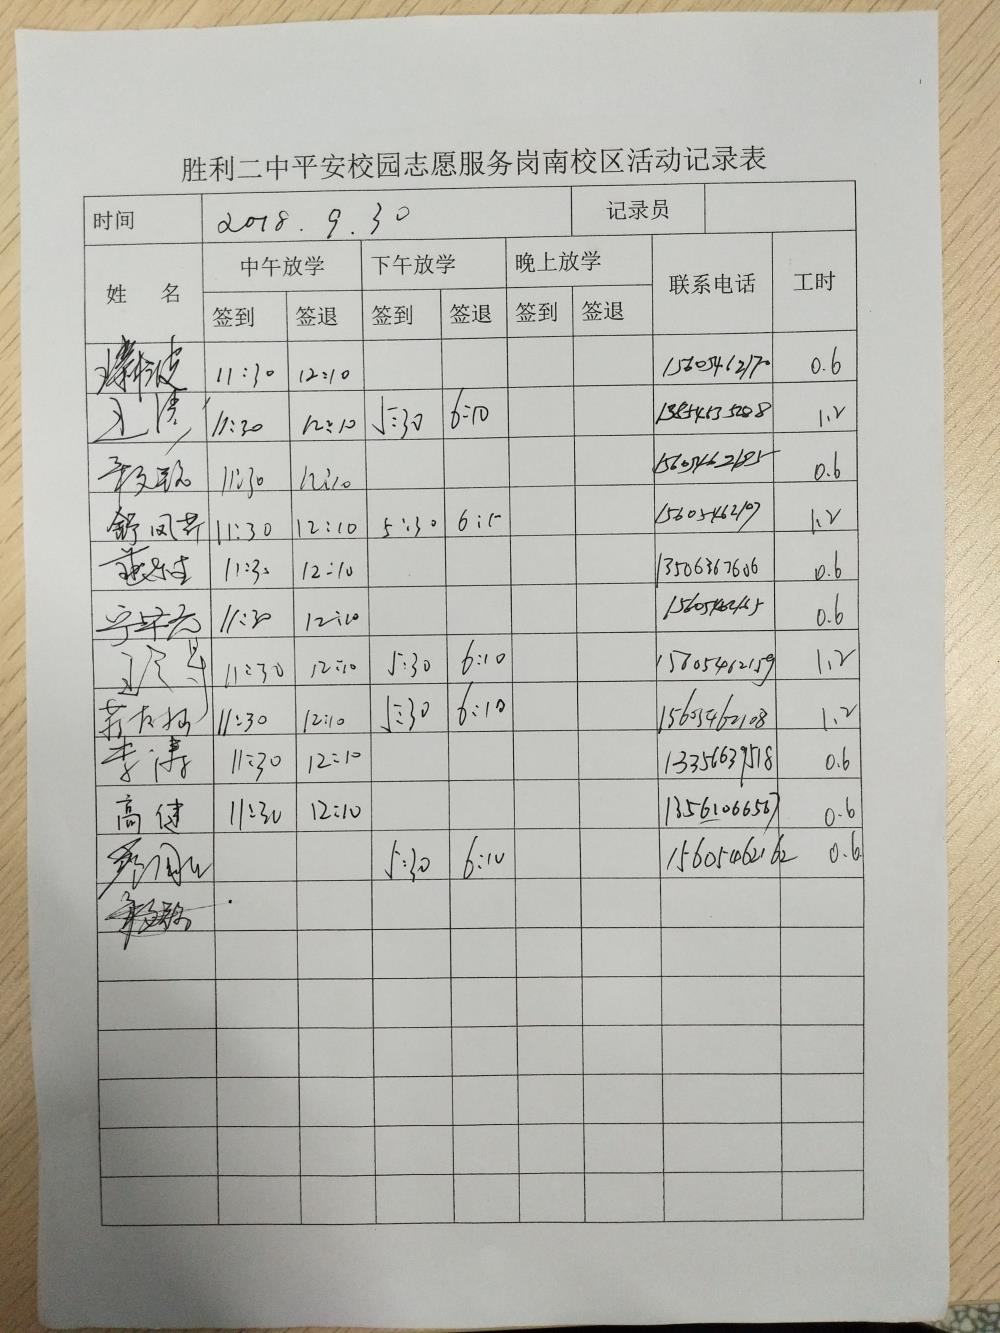 胜利二中平安校园志愿服务岗南校区活动记录表
时间 2018.9.30 记录员
姓 名 中午放学 下午放学 晚上放学 联系电话 工时
签到 签退 签到 签退 签到 签退
11:30 12:10 15605462170 0.6
11:30 12:10 5:30 6:10 13854635208 1.2
11:30 12:10 0.6
舒凤芹 11:30 12:10 5:30 1.2
11:30 12:10 13506367606 0.6
11:30 12:10 0.6
11:30 12:10 5:30 6:10 15605462159 1.2
11:30 12:10 5:30 6:10 15605462108 1.2
李涛 11:30 12:10 13356639518 0.6
高健 11:30 12:10 13561066567 0.6
5:30 6:10 15605462162 0.6